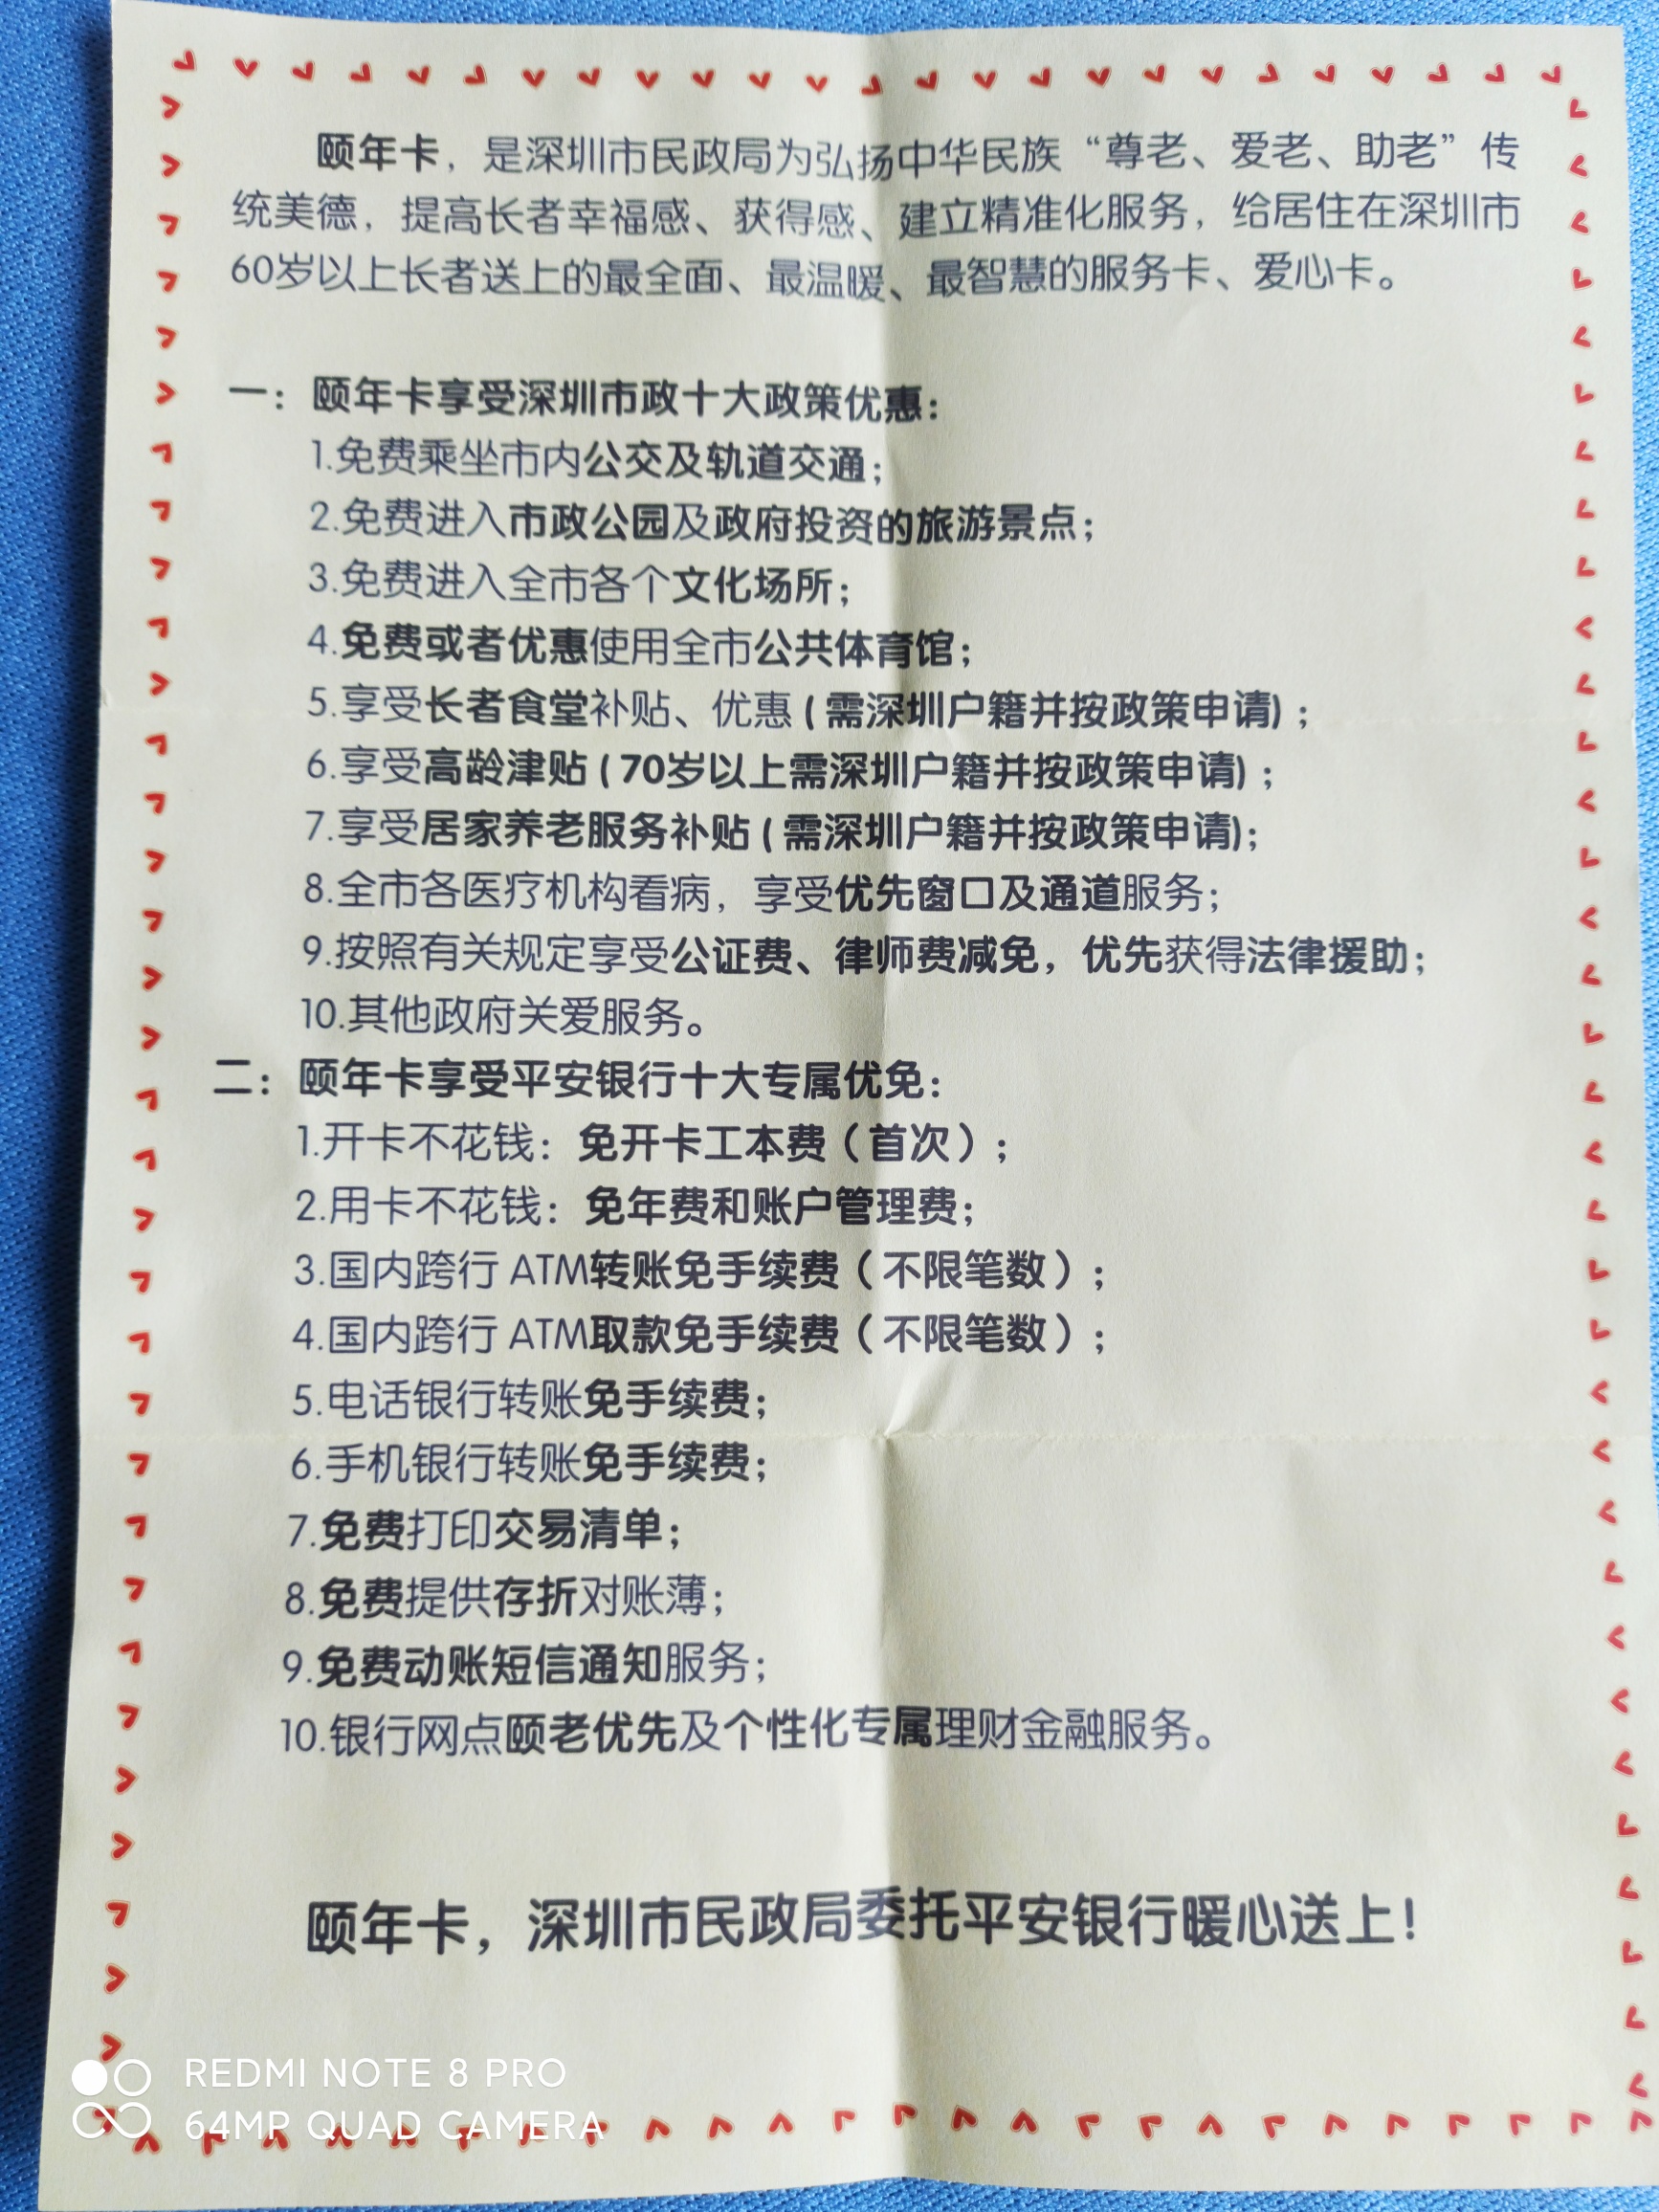 颐年卡，是深圳市民政局为弘扬中华民族“尊老、爱老、助老”传
统美德，提高长者幸福感、获得感、建立精准化服务，给居住在深圳市
60岁以上长者送上的最全面、最温暖、最智慧的服务卡、爱心卡。
一：颐年卡享受深圳市政十大政策优惠：
1.免费乘坐市内公交及轨道交通；
2.免费进入市政公园及政府投资的旅游景点；
3.免费进入全市各个文化场所；
4.免费或者优惠使用全市公共体育馆；
5.享受长者食堂补贴、优惠(需深圳户籍并按政策申请)；
6.享受高龄津贴(70岁以上需深圳户籍并按政策申请)；
7.享受居家养老服务补贴(需深圳户籍并按政策申请)；
8.全市各医疗机构看病，享受优先窗口及通道服务；
9.按照有关规定享受公证费、律师费减免，优先获得法律援助；
10.其他政府关爱服务。
二：颐年卡享受平安银行十大专属优免：
1.开卡不花钱：免开卡工本费（首次）；
2.用卡不花钱：免年费和账户管理费；
3.国内跨行 ATM转账免手续费（不限笔数）；
4.国内跨行 ATM取款免手续费（不限笔数）；
5.电话银行转账免手续费；
6.手机银行转账免手续费；
7.免费打印交易清单；
8.免费提供存折对账薄；
9.免费动账短信通知服务；
10.银行网点颐老优先及个性化专属理财金融服务。
颐年卡，深圳市民政局委托平安银行暖心送上！
REDMI NOTE 8 PRO
64MP QUAD CAMERA